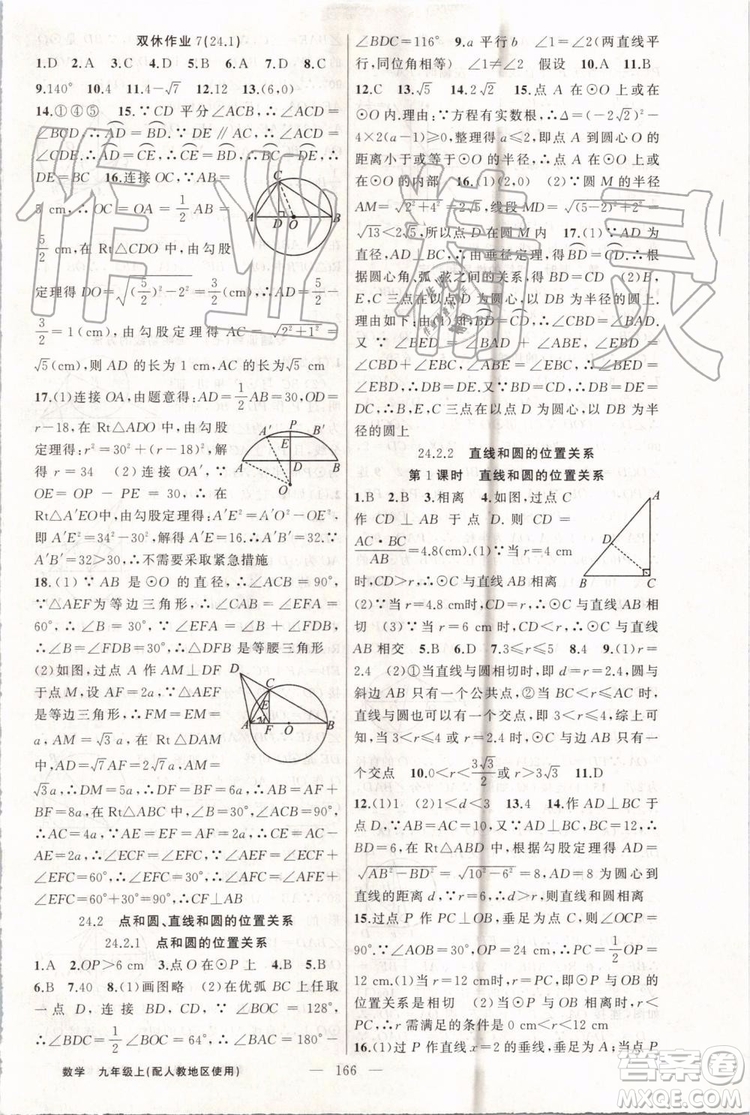 双休作业7(24.1)
1.D 2.A 3.C 4.B 5.B 6.D 7.D 8.C
9.140° 10.4 11.4-√7 12.12 13.(6,0)
14.①④⑤ 15.∵CD 平分∠ACB,∴∠ACD=
∠BCD,∴AD=BD,∵DE∥AC,∴∠ACD=
∠CDE,∴AD=CE,∴BD=CE,∴DE=BC,∴
DE=BC 16.连接 OC,∵AB=
5 cm,∴OC=OA=1/2 AB=
5/2 cm,在 Rt△CDO 中,由勾股
定理得 DO=√((5/2)²-2²)=
3/2=1(cm),由勾股定理得 AC=√(2²+1²)=
√5(cm),则 AD 的长为 1 cm,AC 的长为√5 cm
17.(1)连接 OA,由题意得:AD=1/2 AB=30,OD=
r-18,在 Rt△ADO 中,由勾股
定理得:r²=30²+(r-18)²,解
得 r=34 (2)连接 OA′,∵
OE=OP-PE=30,∴在
Rt△A′EO 中,由勾股定理得:A′E²=A′O²-OE²,即:
A′E²=34²-30²,解得:A′E=16,∴A′B′=32.∵
A′B′=32>30,∴不需要采取紧急措施
18.(1)∵AB 是⊙O 的直径,∴∠ACB=90°,
∵△AEF 为等边三角形,∴∠CAB=∠EFA=
60°,∴∠B=30°,∵∠EFA=∠B+∠FDB,∴
∠B=∠FDB=30°,∴△DFB 是等腰三角形
(2)如图,过点 A 作 AM⊥DF 于
点 M,设 AF=2a,∵△AEF 是等
边三角形,∴FM=EM=
a,AM=√3 a,在 Rt△DAM
中,AD=√7 AF=2√7 a,AM=
√3 a,∴DM=5a,∴DF=BF=6a,∴AB=AF+
BF=8a,在 Rt△ABC 中,∠B=30°,∠ACB=90°,
∴AC=4a,∵AE=EF=AF=2a,∴CE=AC-
AE=2a,∴∠ECF=∠EFC,∵∠AEF=∠ECF+
∠EFC=60°,∴∠CFE=30°,∴∠AFC=∠AFE+
∠EFC=60°+30°=90°,∴CF⊥AB
24.2 点和圆、直线和圆的位置关系
24.2.1 点和圆的位置关系
1.A 2.OP>6 cm 3.点A在⊙P上 4.B 5.B
6.B 7.40 8.(1)画图略 (2)在优弧BC上任取
一点 D,连接 BD,CD,∵∠BOC=128°,∴
∠BDC=1/2∠BOC=64°,∴∠BAC=180°-
∠BDC=116° 9.a 平行b ∠1=∠2(两直线平
行,同位角相等) ∠1≠∠2 假设 10.A 11.B
12.C 13.5 14.2或4 15.点 A 在⊙O 的内部或⊙O
上.理由:∵方程有实数根,∴Δ=(-2√2)²-
4×2(a-1)≥0,整理得 a≤2,即:点 A 到圆心O 的
距离小于或等于⊙O的半径,∴点 A 在⊙O 上或
⊙O的内部 16.(1)(2,0) (2)∵圆 M 的半径
AM=√(2²+4²)=2√5,线段 MD=√((5-2)²+2²)=
√13<2√5,所以点 D 在圆 M 内 17.(1)∵AD 为
直径,AD⊥BC,∴由垂径定理得:BD=CD,∴根
据圆心角、弧、弦之间的关系得:BD=CD (2)B,
E,C三点在以点 D 为圆心,以 DB 为半径的圆上.
理由如下:由(1)知:BD=CD,∴∠BAD=
∠CBD,又∵BE平分∠ABC,∴∠CBE=∠ABE,
∵∠DBE=∠CBD+∠CBE,∠DEB=∠BAD+
∠ABE,∴∠DBE=∠DEB,∴DB=DE,∴DB=
DE=DC,∴B,E,C三点在以点 D 为圆心,以DB 为半
径的圆上
24.2.2 直线和圆的位置关系
第1课时 直线和圆的位置关系
1.B 2.B 3.相离 4.如图,过点 C
作 CD⊥AB 于点 D,则 CD=
AC·BC/AB=4.8(cm).(1)当 r=4 cm
时,CD>r,∴⊙C 与直线 AB 相离
(2)当 r=4.8 cm 时,CD=r,∴⊙C 与直线 AB 相
切 (3)当 r=6 cm 时,CD<r,∴⊙C 与直线
AB 相交 5.B 6.D 7.0≤d<5 8.B 9.(1)r=
2.4 (2)当直线与圆相切时,即 d=r=2.4,圆与
斜边 AB 只有一个公共点,当直线与圆相交时,即
d<r,圆与斜边 AB 只有一个公共点,即3<r≤4,综上可
知:当 r=2.4 或 3<r≤4 时,⊙C 与斜边 AB 只有一
个交点 10.0<r<3√3/2 r=3√3/2 11.D
12.(1)1 (2)1<d<3 13.4 14.作 AD⊥BC 于
点 D,∵AB=AC=√10,又∵AD⊥BC,BC=12,∴
BD=CD=6,在 Rt△ABC 中,根据勾股定理得:AD=
√(AB²-BD²)=√(10²-6²)=8,∵圆心到直线的
距离等于圆的半径,∴⊙A 与 BC 相切
15.(1)过点 P 作 PC⊥OB,垂足为点 C,则∠OCP=
90°.∵∠AOB=30°,OP=24 cm,∴PC=1/2 OP=
12 cm (2)当 r=12 cm 时,r=PC,∴⊙P 与 OB
相切,即⊙P 与 OB 位置关系是相切 (3)当⊙P 与 OB 的
位置关系是相交时,r 需满足的条件是 r>12 cm
16.(1)过点 P 作 x 轴的垂线,垂足为 A.∵点
数学 九年级上(配人教地区使用)
— 166 —